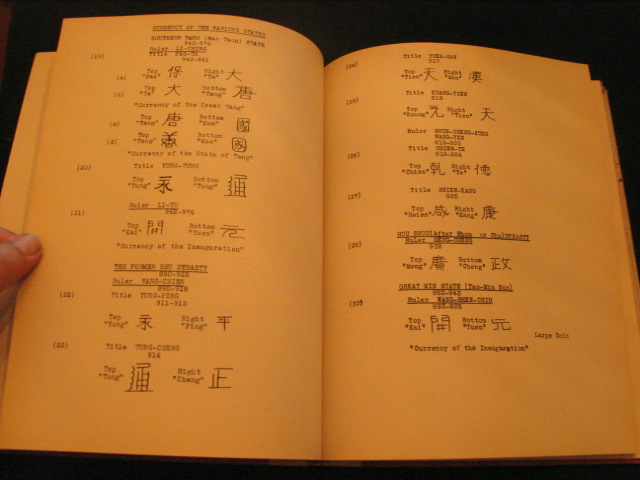 CURRENCY OF THE VARIOUS STATES
SOUTHERN TANG (Nan Tang) STATE
Ruler LI-CHING
(19) Title PAO-TA
Top "Pao" 保 Right "Ta" 大
(a)
(b) Top "Ta" 大 Bottom "Tang" 唐
"Currency of the Great Tang"
(c) Top "Tang" 唐 Bottom "Kuo" 國
(d) Top "Tang" Bottom "Kuo" 國
"Currency of the State of Tang"
(20) Title YUNG-TUNG
Top "Yung" 永 Bottom "Tung" 通
Ruler LI-YU
962-976
(21)
Top "Kai" 開 Bottom "Yuen" 元
"Currency of the Inauguration"
THE FORMER SHU DYNASTY
890-925
Ruler WANG-CHIEN
890-918
(22) Title YUNG-PING
911-915
Top "Yung" 永 Right "Ping" 平
(23) Title TUNG-CHENG
916
Top "Tung" 通 Right "Cheng" 正
(24) Title TIEN-HAN
917
Top "Tien" 天 Right "Han" 漢
(25) Title KUANG-TIEN
918
Top "Kuang" 光 Right "Tien" 天
Ruler
WANG-YEN
(26) Title CHIEN-TE
Top "Chien" 乾 Right "Te" 德
(27) Title HSIEN-KANG
925
Top "Hsien" 咸 Right "Kang" 康
HOU SHOU (After Shou or Chu) DYNASTY
(28) Ruler
938
Top "Meng" 廣 Bottom "Cheng" 政
GREAT MIN STATE (Tao-Min Kuo)
(30) Ruler WANG-SHEN-CHIH
Top "Kai" 開 Bottom "Yuen" 元
Large Coin
"Currency of the Inauguration"